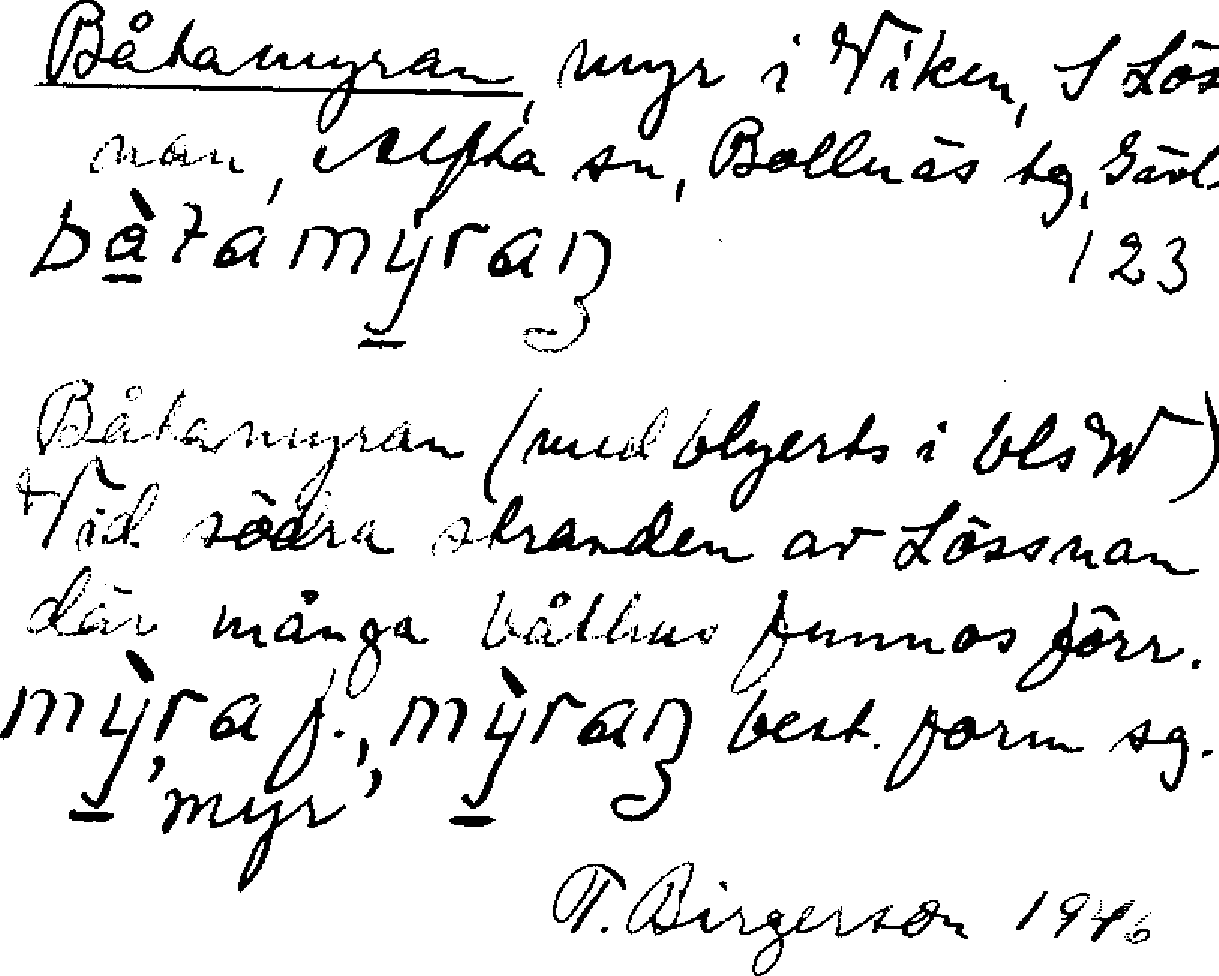 Båtamyran, myr i Viken, S Lös
nan, Alfta sn, Bollnäs tg, Gävl.
bàtamýraɳ 123
Båtamyran (med blyerts i bls W)
Vid södra stranden av Lössnan
där många båthus funnos förr.
mỳra f., mỳraɳ best. form sg.
'myr'
T. Birgerson 1946